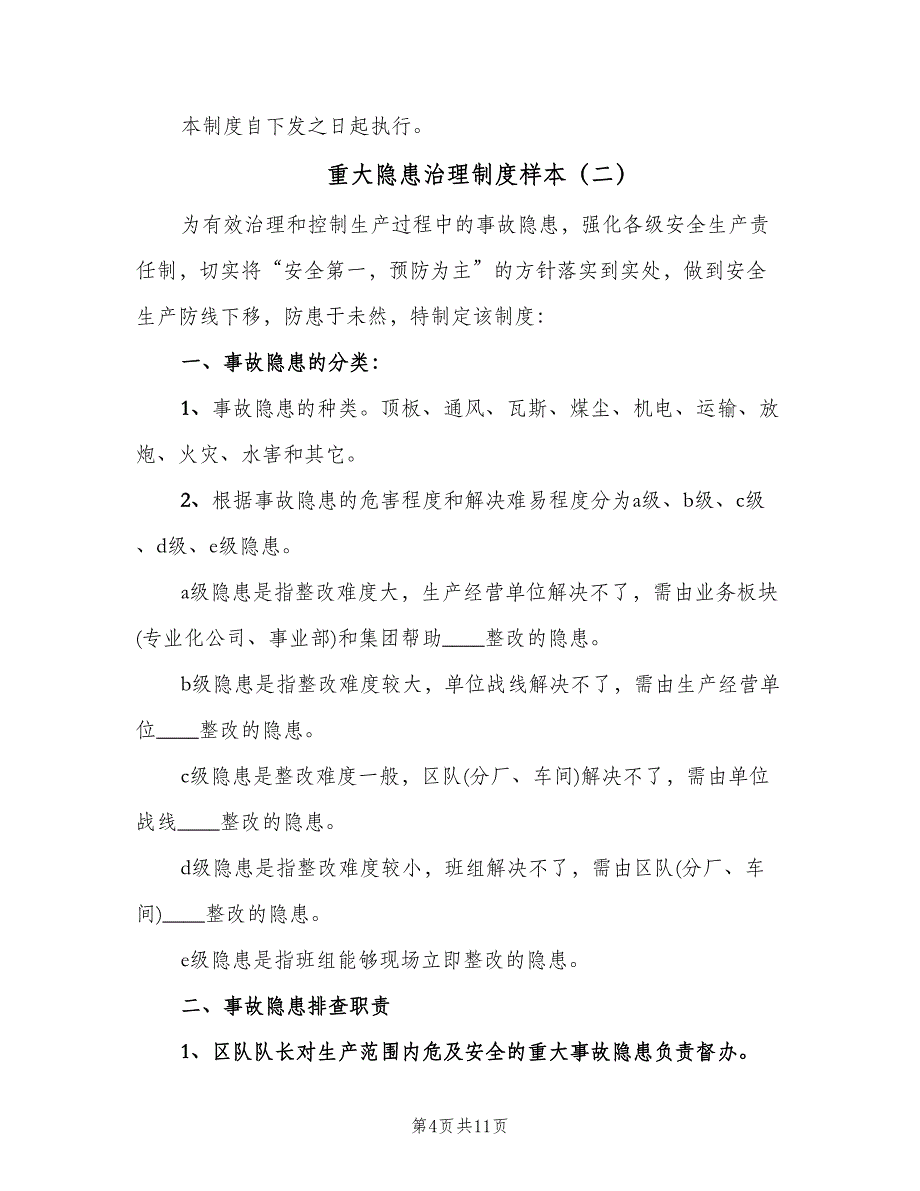 本制度自下发之日起执行。
重大隐患治理制度样本（二）
为有效治理和控制生产过程中的事故隐患，强化各级安全生产责
任制，切实将“安全第一，预防为主”的方针落实到实处，做到安全
生产防线下移，防患于未然，特制定该制度：
一、事故隐患的分类：
1、事故隐患的种类。顶板、通风、瓦斯、煤尘、机电、运输、放
炮、火灾、水害和其它。
2、根据事故隐患的危害程度和解决难易程度分为a级、b级、c级
、d级、e级隐患。
a级隐患是指整改难度大，生产经营单位解决不了，需由业务板块
(专业化公司、事业部)和集团帮助____整改的隐患。
b级隐患是指整改难度较大，单位战线解决不了，需由生产经营单
位____整改的隐患。
c级隐患是整改难度一般，区队(分厂、车间)解决不了，需由单位
战线____整改的隐患。
d级隐患是指整改难度较小，班组解决不了，需由区队(分厂、车
间)____整改的隐患。
e级隐患是指班组能够现场立即整改的隐患。
二、事故隐患排查职责
1、区队队长对生产范围内危及安全的重大事故隐患负责督办。
第4页共11页